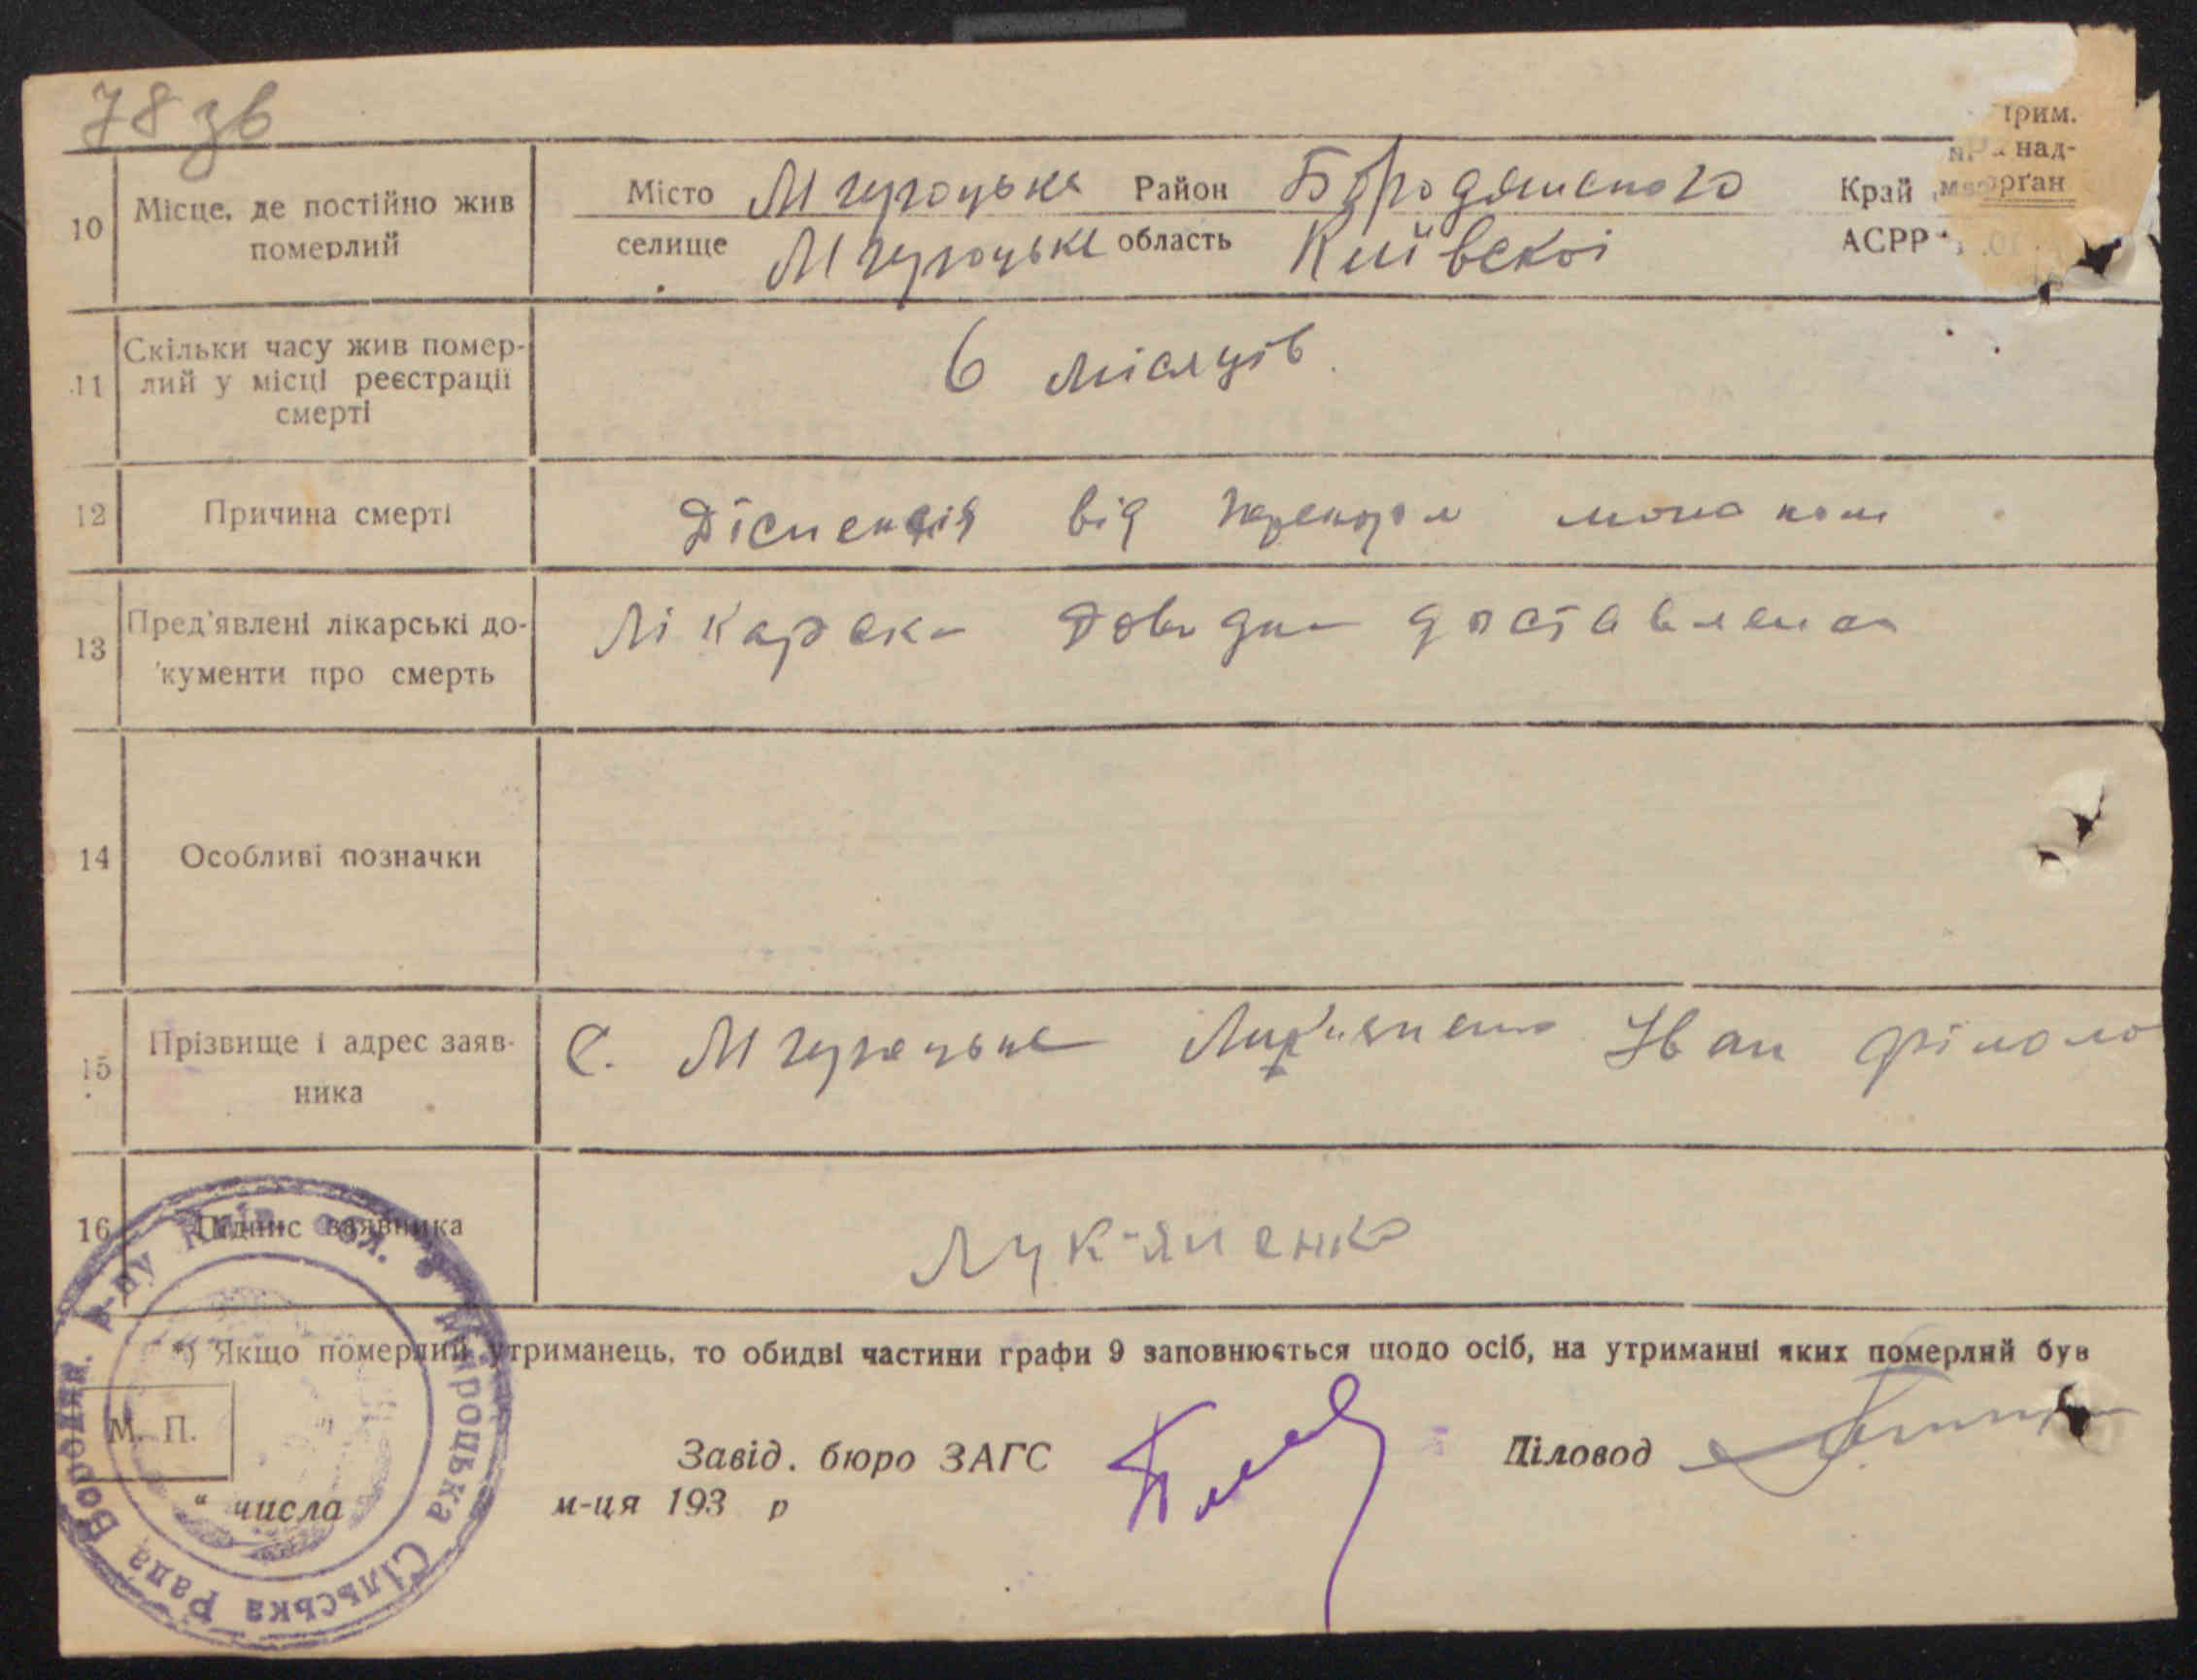 78 зв
прим.
над-
орган
10 Місце, де постійно жив померлий
Місто Мгуроцьке Район Бородянського Край
селище Мгуроцьке область Київської АСРР
11 Скільки часу жив помер-
лий у місці реєстрації
смерті
6 місяців
12 Причина смерті
Діспенсія від
13 Пред'явлені лікарські до-
кументи про смерть
Лікарска довидка доставлена
14 Особливі позначки
15 Прізвище і адрес заяв-
ника
С. Мгуроцьке Іван
16 Підпис заявника
Лук-яненко
*) Якщо померлий утриманець, то обидві частини графи 9 заповнюється щодо осіб, на утриманні яких померлий був
М. П.
Завід. бюро ЗАГС
Діловод
" числа м-ця 193 р
Мироцька Сільська Рада Бородян. р-ну Київ. обл.